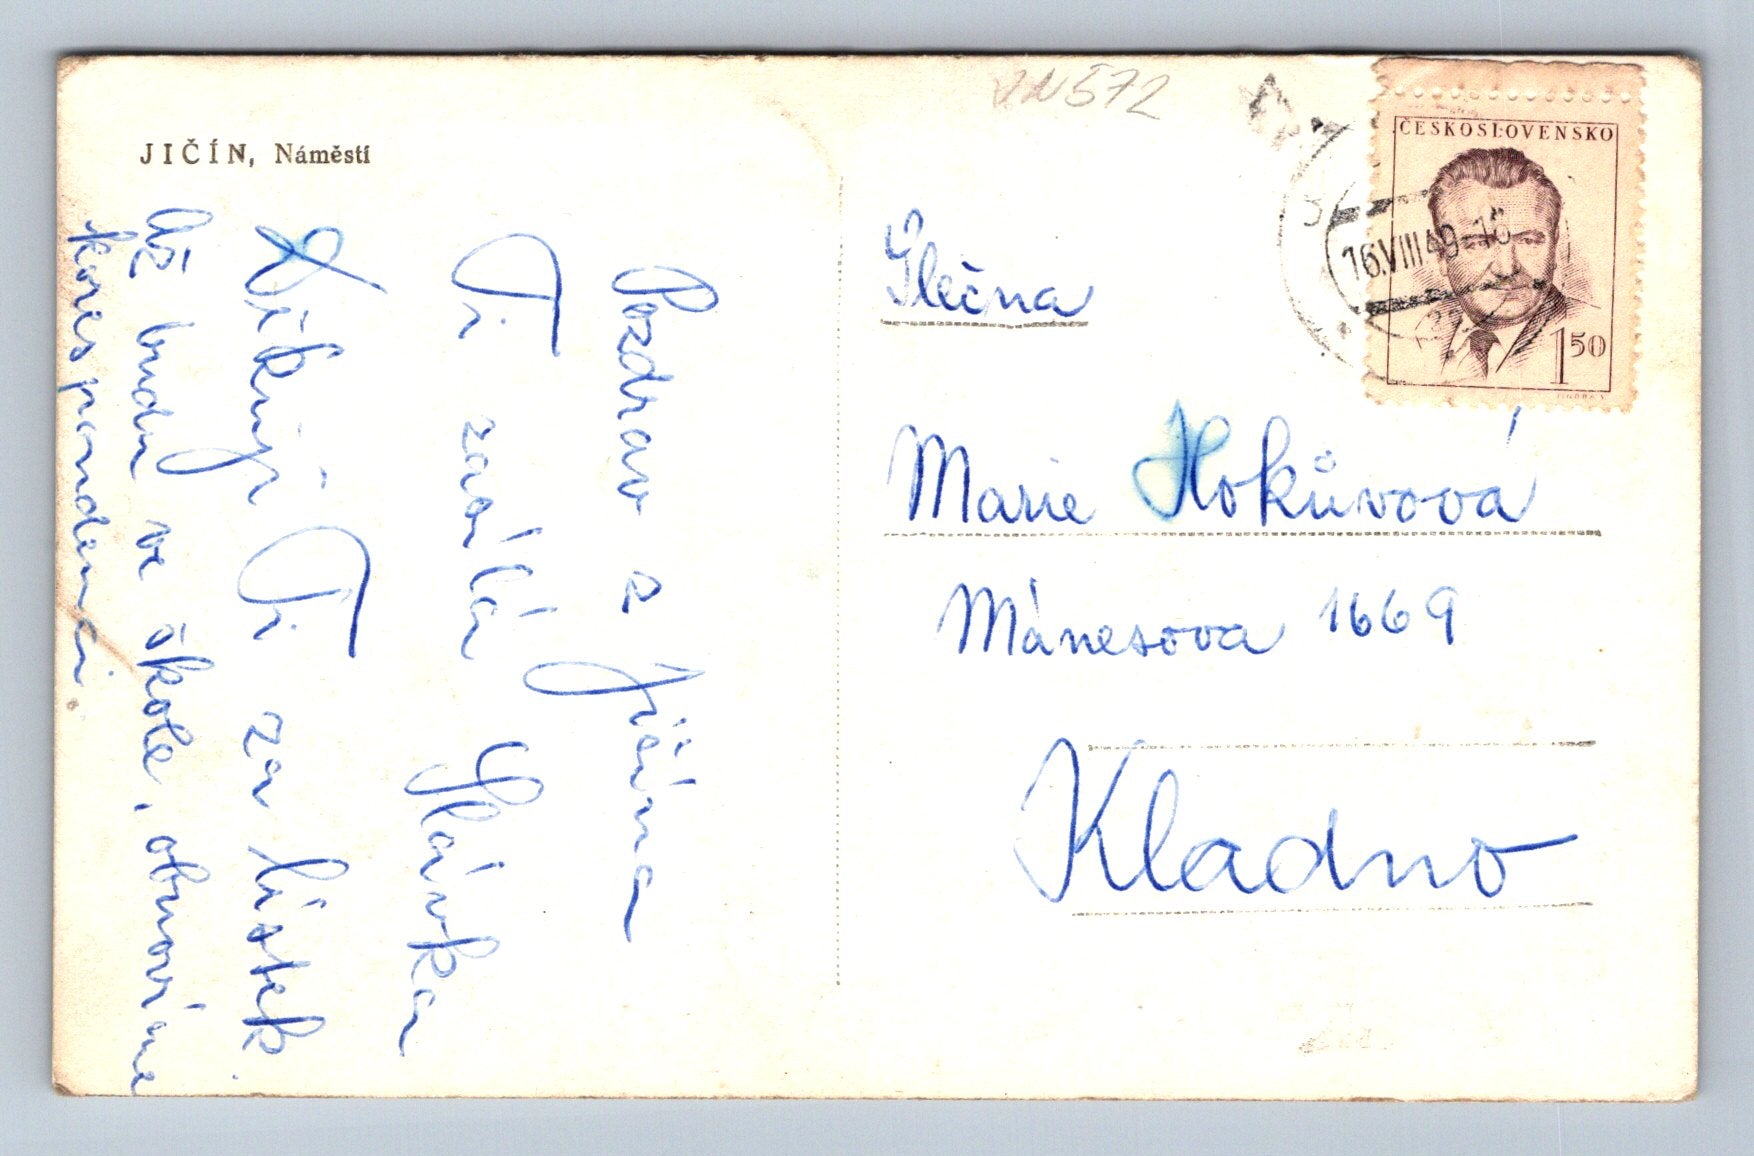 JIČÍN, Náměstí
Pozdrav z Jičína
Ti zasílá Slávka
Děkuji Ti za lístek.
Až budu ve škole, obnovíme
korespondenci.
VN572
ČESKOSLOVENSKO
16.VIII 49-18
1 50
Slečna
Marie Hokůvová
Mánesova 1669
Kladno